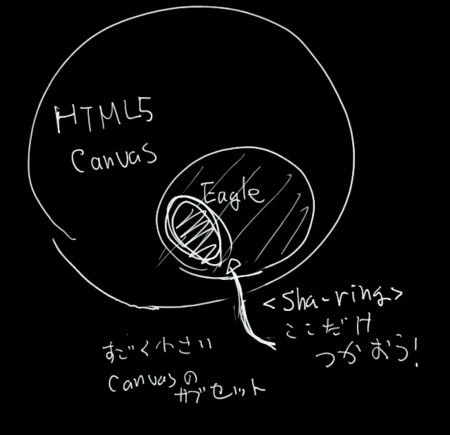 HTML5
Canvas
Eagle
<Sha-ring>
ここだけ
つかおう!
すごく小さい
Canvasの
サブセット